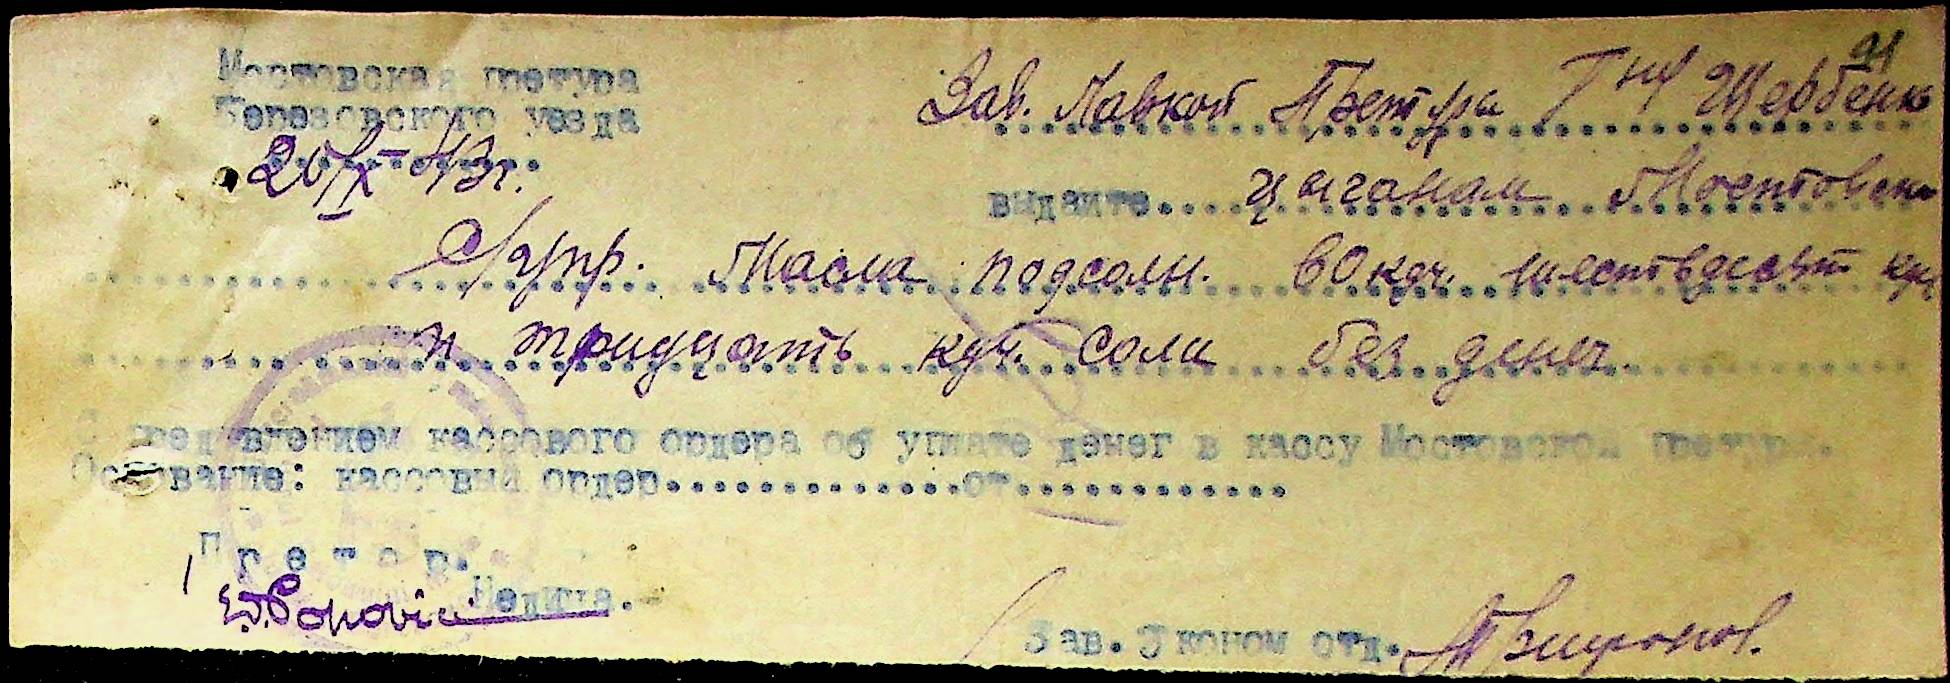 91
Мостовская претура
Березовского уезда
20/IX-43г.
Зав. Лавкой Претуры Г-ну Щербенко
выдайте.... цыганам Мостовск
Масла подсолн. 60 кгч. шестьдесят кгч
и тридцать кгч. соли без денег.
С пред'явлением кассового ордера об уплате денег в кассу Мостовской претуры.
Основание: кассовый ордер..............от.............
Претор.
Popovici
Зав. Эконом отд. Трифонов.